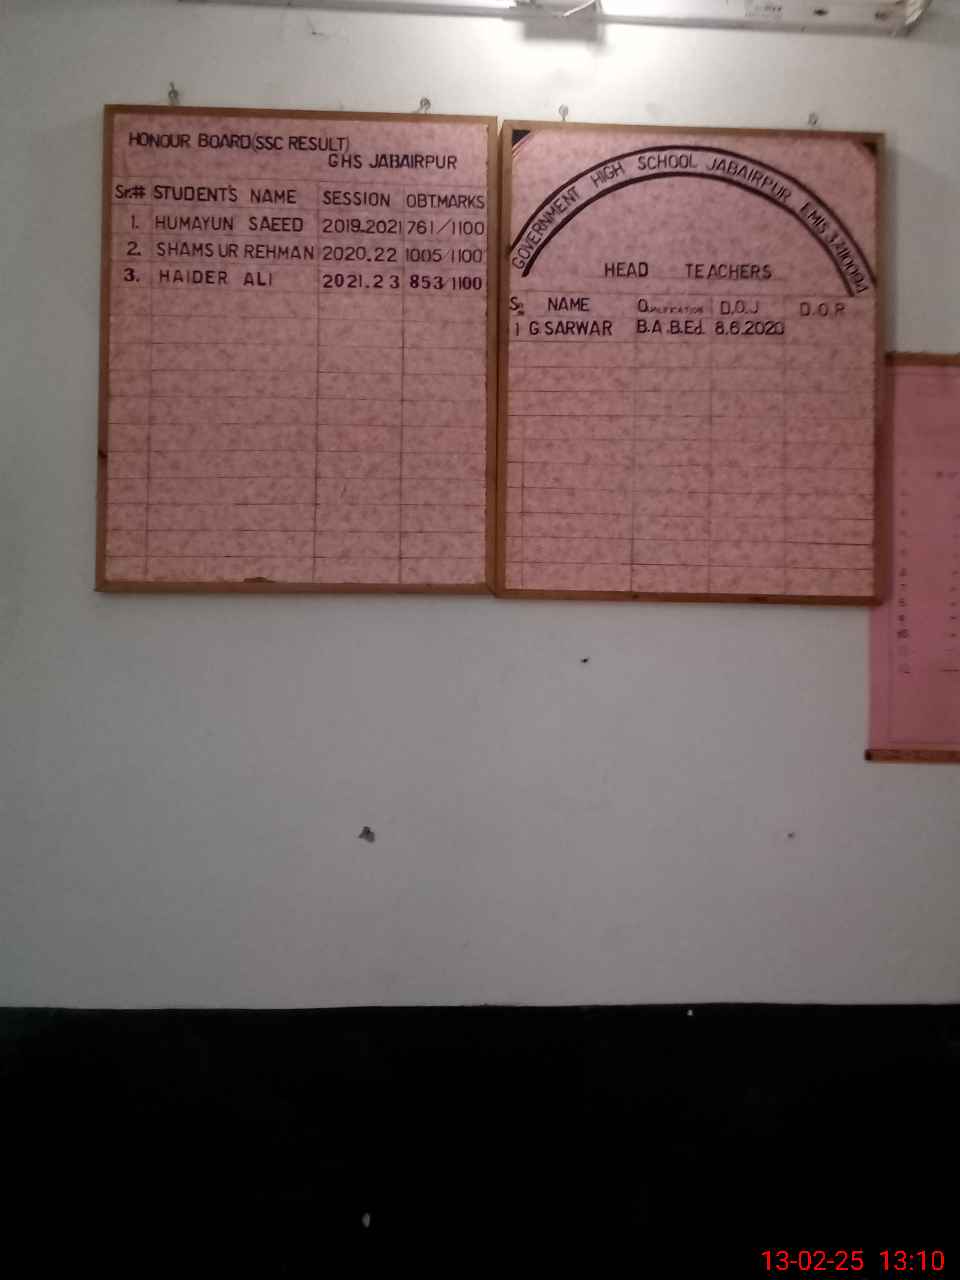 HONOUR BOARD(SSC RESULT)
GHS JABAIRPUR
Sr.# STUDENT'S NAME SESSION OBTMARKS
1. HUMAYUN SAEED 2019-2021 761/1100
2. SHAMS UR REHMAN 2020.22 1005/1100
3. HAIDER ALI 2021.23 853/1100
GOVERNMENT HIGH SCHOOL JABAIRPUR EMIS
HEAD TEACHERS
Sr NAME QUALIFICATION D.O.J D.O.R
1 G SARWAR B.A.B.Ed. 8.6.2020
13-02-25 13:10